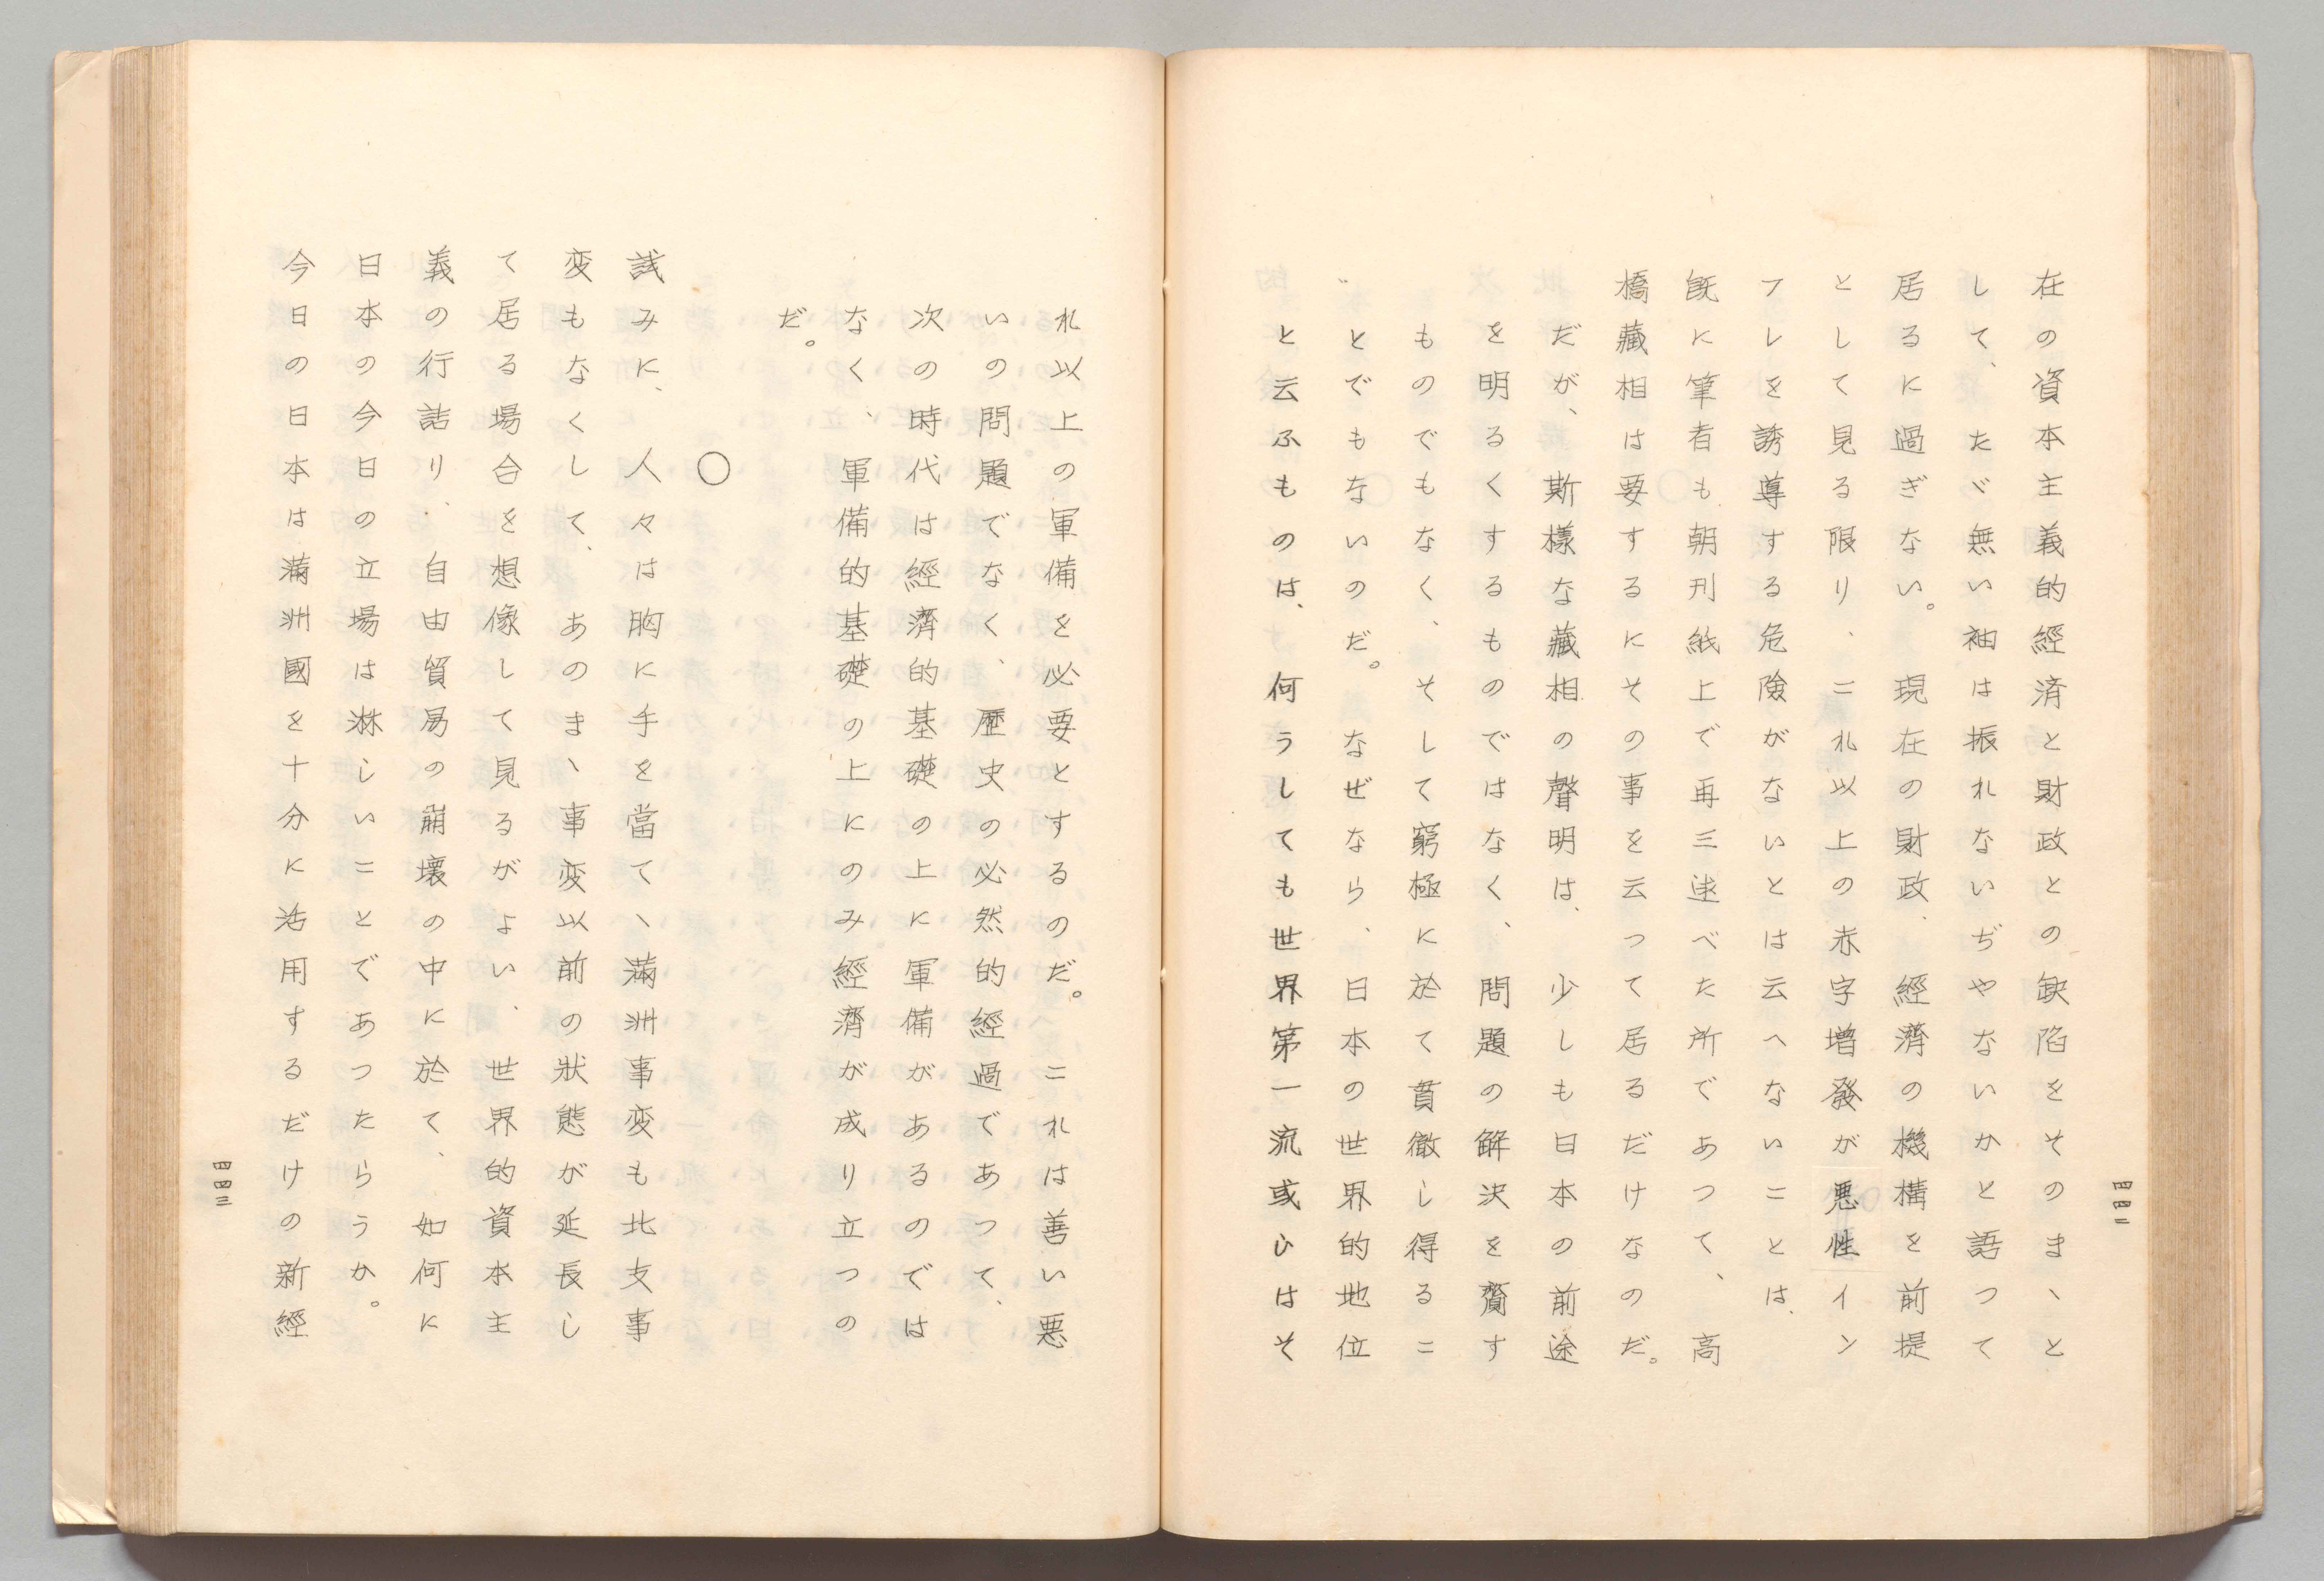 四四二
在の資本主義的經済と財政との缺陷をそのまゝと
して、たゞ無い袖は振れないぢやないかと語つて
居るに過ぎない。現在の財政、經濟の機構を前提
として見る限り、これ以上の赤字増發が悪性イン
フレを誘導する危険がないとは云へないことは、
既に筆者も朝刊紙上で再三述べた所であつて、高
橋藏相は要するにその事を云つて居るだけなのだ。
だが、斯様な藏相の聲明は、少しも日本の前途
を明るくするものではなく、問題の解決を齎す
ものでもなく、そして窮極に於て貫徹し得るこ
とでもないのだ。なぜなら、日本の世界的地位
と云ふものは、何うしても世界第一流或ひはそ
れ以上の軍備を必要とするのだ。これは善い悪
いの問題でなく、歴史の必然的經過であつて、
次の時代は經濟的基礎の上に軍備があるのでは
なく、軍備的基礎の上にのみ經濟が成り立つの
だ。
〇
試みに、人々は胸に手を當てゝ滿洲事変も北支事
変もなくして、あのまゝ事変以前の狀態が延長し
て居る場合を想像して見るがよい、世界的資本主
義の行詰り、自由貿易の崩壊の中に於て、如何に
日本の今日の立場は淋しいことであつたらうか。
今日の日本は滿洲國を十分に活用するだけの新經
四四三